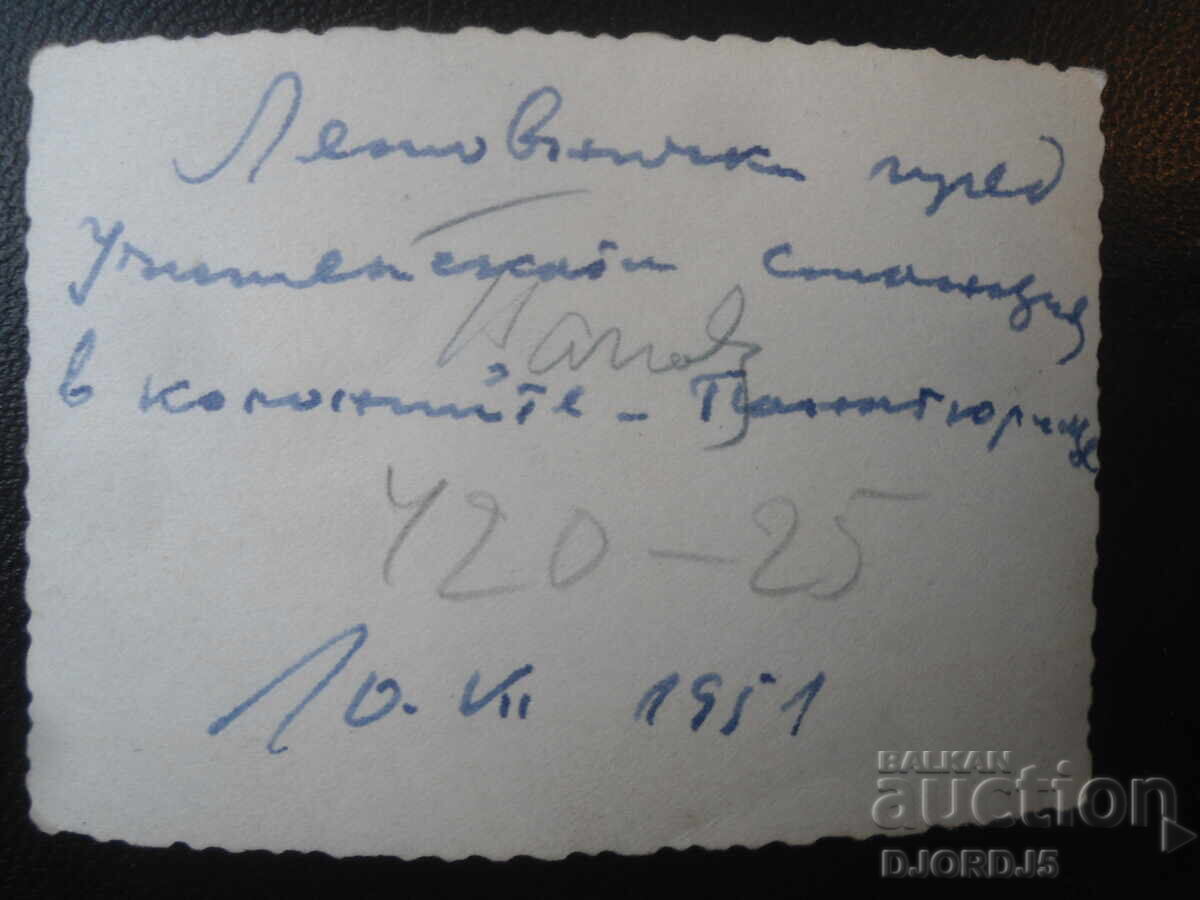 Летовнички пред
Учителската станция
в колониите – Панагюрище
420–25
10. VII 1951
BALKAN
auction
DJORDJ5